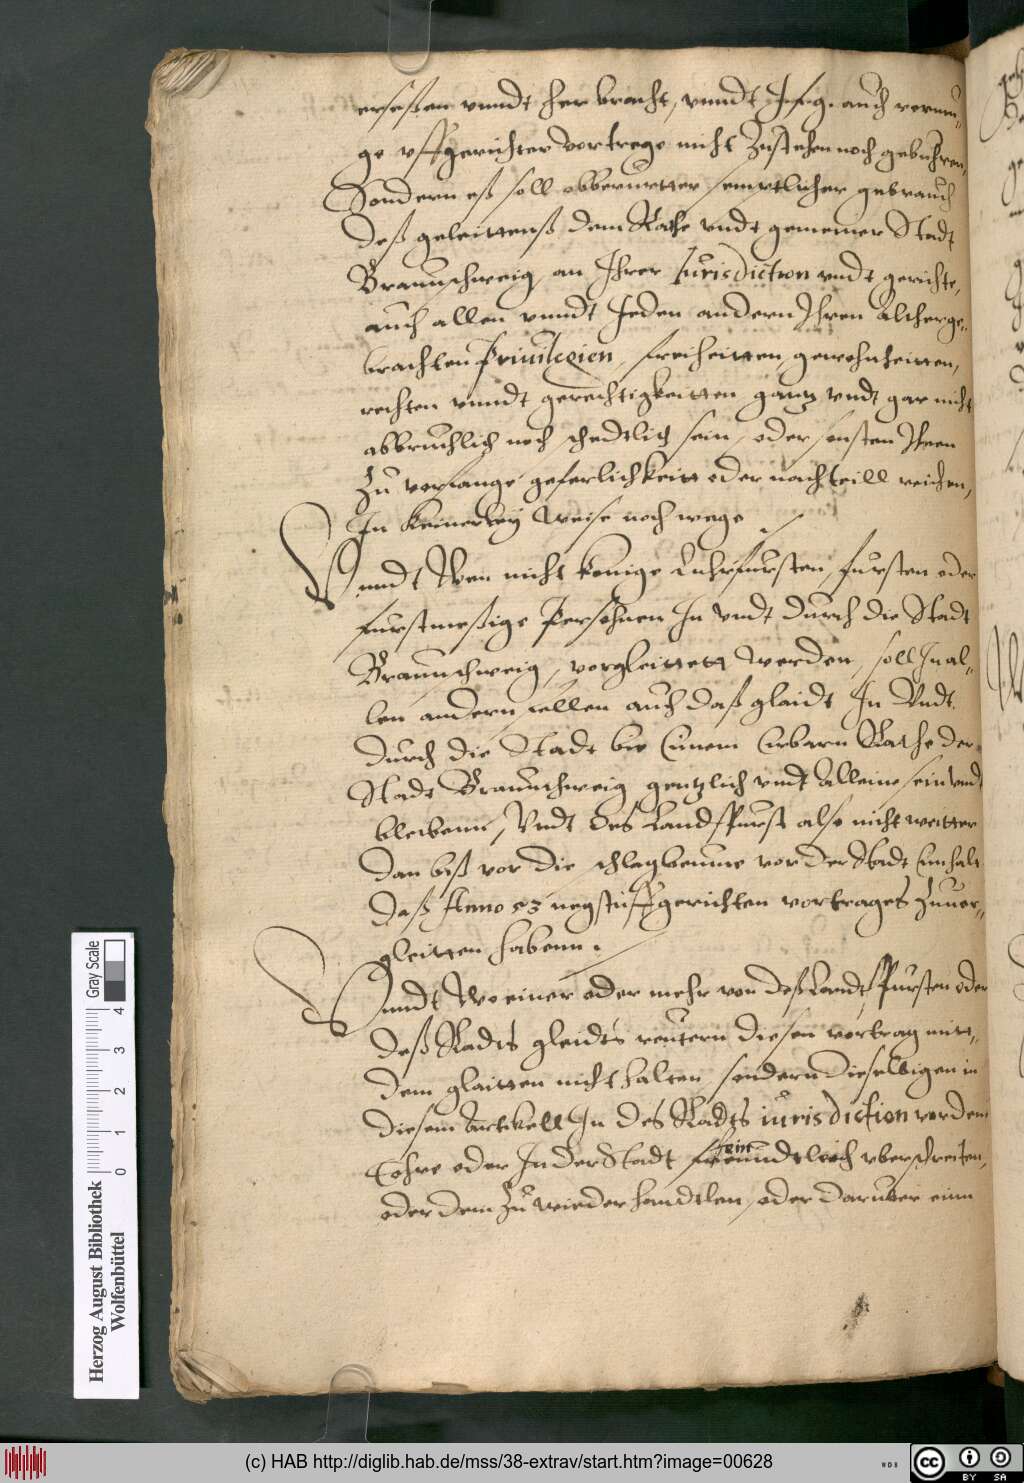 erseßen vnndt herbracht, vnndt J. f. g. auch vermu-
ge vffgerichter vortrege nicht Zustehen noch gebuhren,
Sondern eß soll obberurtter semptlicher gebrauch
deß geleittenß dem Rathe vndt gemeiner Stadt
Braunschweig an Ihrer Jurisdiction vndt gerichte,
auch allen vnndt Jeden andern Ihren altherge-
brachten Priuilegien, freiheitten, gewohnheitten,
rechten vnndt gerechtigkeitten gantz vndt gar nicht
abbruchlich noch schedtlich sein, oder sonsten Ihnen
Zu vorfange geferlichkeitt oder nachteill reichen,
In keinerley weise noch wege
Vnndt Wen nicht konige Churfursten, fursten oder
furstmeßige Persohnen In vndt durch die Stadt
Braunschweig, vorgleittett werden, soll In al-
len andern fellen auch daß glaidt In Vndt
durch die Stadt bie Einem Erbarn Rathe der
Stadt Braunschweig gentzlich vndt alleine sein vnd
bleibenn, Vndt des Landsfurst also nicht weitter
dan biß vor die schlagbeume vor der Stadt Einhalt
daß Anno 53 negst uffgerichten vortrages Zuuer-
gleitten habenn.
Vnndt Wo einer oder mehr von deß Landtsfursten oder
deß Radts gleidts reutern diesen vortrag mitt
dem glaitten nicht halten, sondern dieselbigen in
diesem Artikell In des Radts iurisdiction vor dem
Tohre oder In der Stadt freundtlich vberschreiten,
oder dem Zu wieder handtlen, oder daruber einn
Herzog August Bibliothek
Wolfenbüttel
0 1 2 3 4
Gray Scale
(c) HAB http://diglib.hab.de/mss/38-extrav/start.htm?image=00628
WDB
CC BY SA